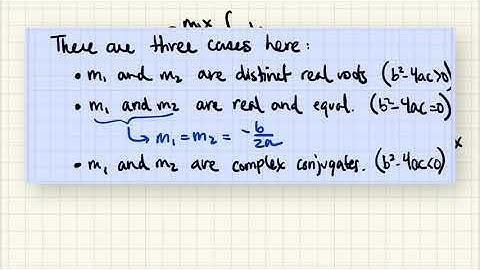 There are three cases here:
• m₁ and m₂ are distinct real roots (b²-4ac>0)
• m₁ and m₂ are real and equal. (b²-4ac=0)
↳ m₁ = m₂ = -b/2a
• m₁ and m₂ are complex conjugates. (b²-4ac<0)
x